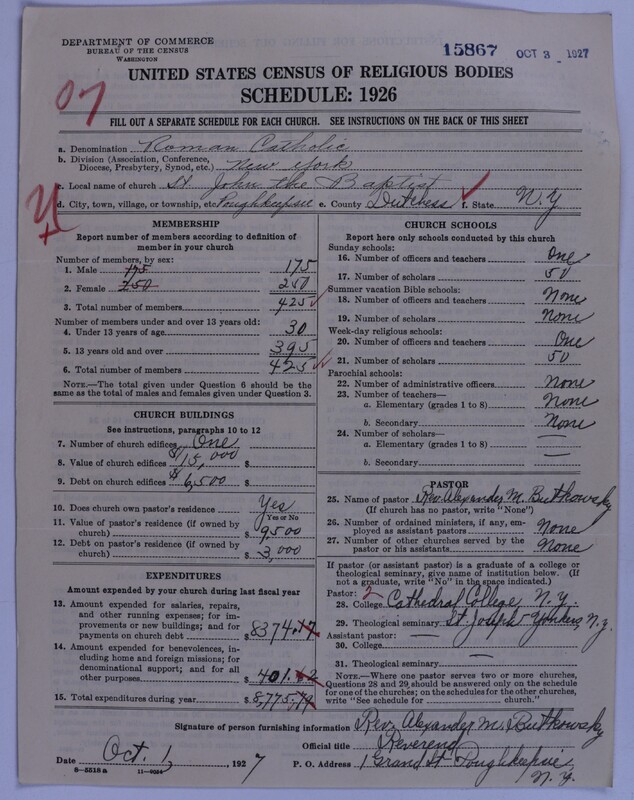 DEPARTMENT OF COMMERCE
BUREAU OF THE CENSUS
WASHINGTON
15867 OCT 3 1927
UNITED STATES CENSUS OF RELIGIOUS BODIES
SCHEDULE: 1926
07
FILL OUT A SEPARATE SCHEDULE FOR EACH CHURCH. SEE INSTRUCTIONS ON THE BACK OF THIS SHEET
a. Denomination Roman Catholic
b. Division (Association, Conference, Diocese, Presbytery, Synod, etc.) New York
c. Local name of church St. John the Baptist
d. City, town, village, or township, etc. Poughkeepsie e. County Dutchess f. State N.Y
MEMBERSHIP
Report number of members according to definition of member in your church
Number of members, by sex:
1. Male 175 175
2. Female 250 250
3. Total number of members 425
Number of members under and over 13 years old:
4. Under 13 years of age 30
5. 13 years old and over 395
6. Total number of members 425
NOTE.—The total given under Question 6 should be
same as the total of males and females given under Question 3.
CHURCH BUILDINGS
See instructions, paragraphs 10 to 12
7. Number of church edifices One
8. Value of church edifices $15,000 $
9. Debt on church edifices $6,500 $
10. Does church own pastor's residence? Yes
Yes or No
11. Value of pastor's residence (if owned by
church) $9500
12. Debt on pastor's residence (if owned by
church) $3,000
EXPENDITURES
Amount expended by your church during last fiscal year
13. Amount expended for salaries, repairs,
and other running expenses; for im-
provements or new buildings; and for
payments on church debt $8374.17
14. Amount expended for benevolences, in-
cluding home and foreign missions; for
denominational support; and for all
other purposes $401.
15. Total expenditures during year $8,775.
CHURCH SCHOOLS
Report here only schools conducted by this church
Sunday schools:
16. Number of officers and teachers One
17. Number of scholars 50
Summer vacation Bible schools:
18. Number of officers and teachers None
19. Number of scholars None
Week-day religious schools:
20. Number of officers and teachers One
21. Number of scholars 50
Parochial schools:
22. Number of administrative officers None
23. Number of teachers—
a. Elementary (grades 1 to 8) None
b. Secondary None
24. Number of scholars—
a. Elementary (grades 1 to 8) —
b. Secondary —
PASTOR
25. Name of pastor Rev. Alexander M. Butkowsky
(If church has no pastor, write "None")
26. Number of ordained ministers, if any, em-
ployed as assistant pastors None
27. Number of other churches served by the
pastor or his assistants None
If pastor (or assistant pastor) is a graduate of a college or
theological seminary, give name of institution below. (If
not a graduate, write "No" in the space indicated.)
Pastor: 2
28. College Cathedral College, N.Y.
29. Theological seminary St Joseph Yonkers, N.Y.
Assistant pastor: —
30. College
31. Theological seminary —
NOTE.—Where one pastor serves two or more churches,
Questions 28 and 29 should be answered only on the schedule
for one of the churches; on the schedules for the other churches,
write "See schedule for church."
Signature of person furnishing information Rev. Alexander M. Butkowsky
Official title Reverend
Date Oct. 1, 1927 P. O. Address 1 Grand St Poughkeepsie
N.Y.
8—5518 a 11—9054